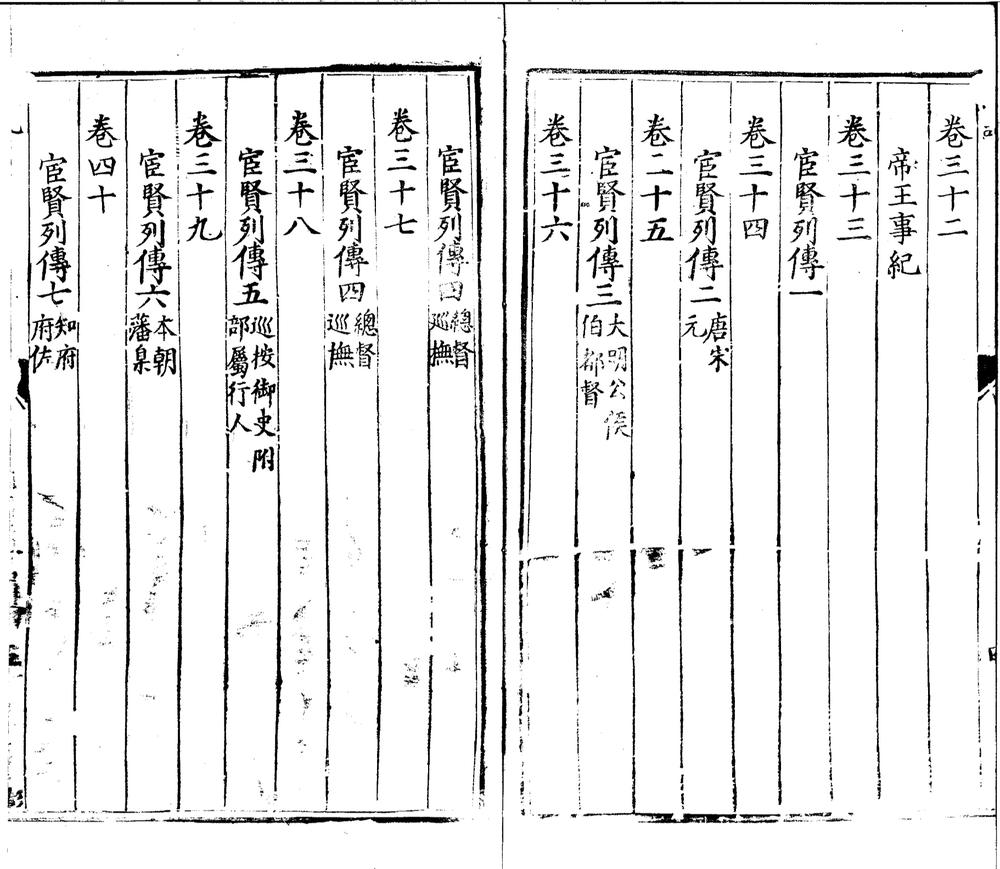 卷三十二
帝王事紀
卷三十三
宦賢列傳一
卷三十四
宦賢列傳二 唐宋元
卷二十五
宦賢列傳三 大明公侯伯都督
卷三十六
宦賢列傳四 總督巡撫
卷三十七
宦賢列傳四 總督巡撫
卷三十八
宦賢列傳五 巡按御史附部屬行人
卷三十九
宦賢列傳六 本朝藩臬
卷四十
宦賢列傳七 知府府佐